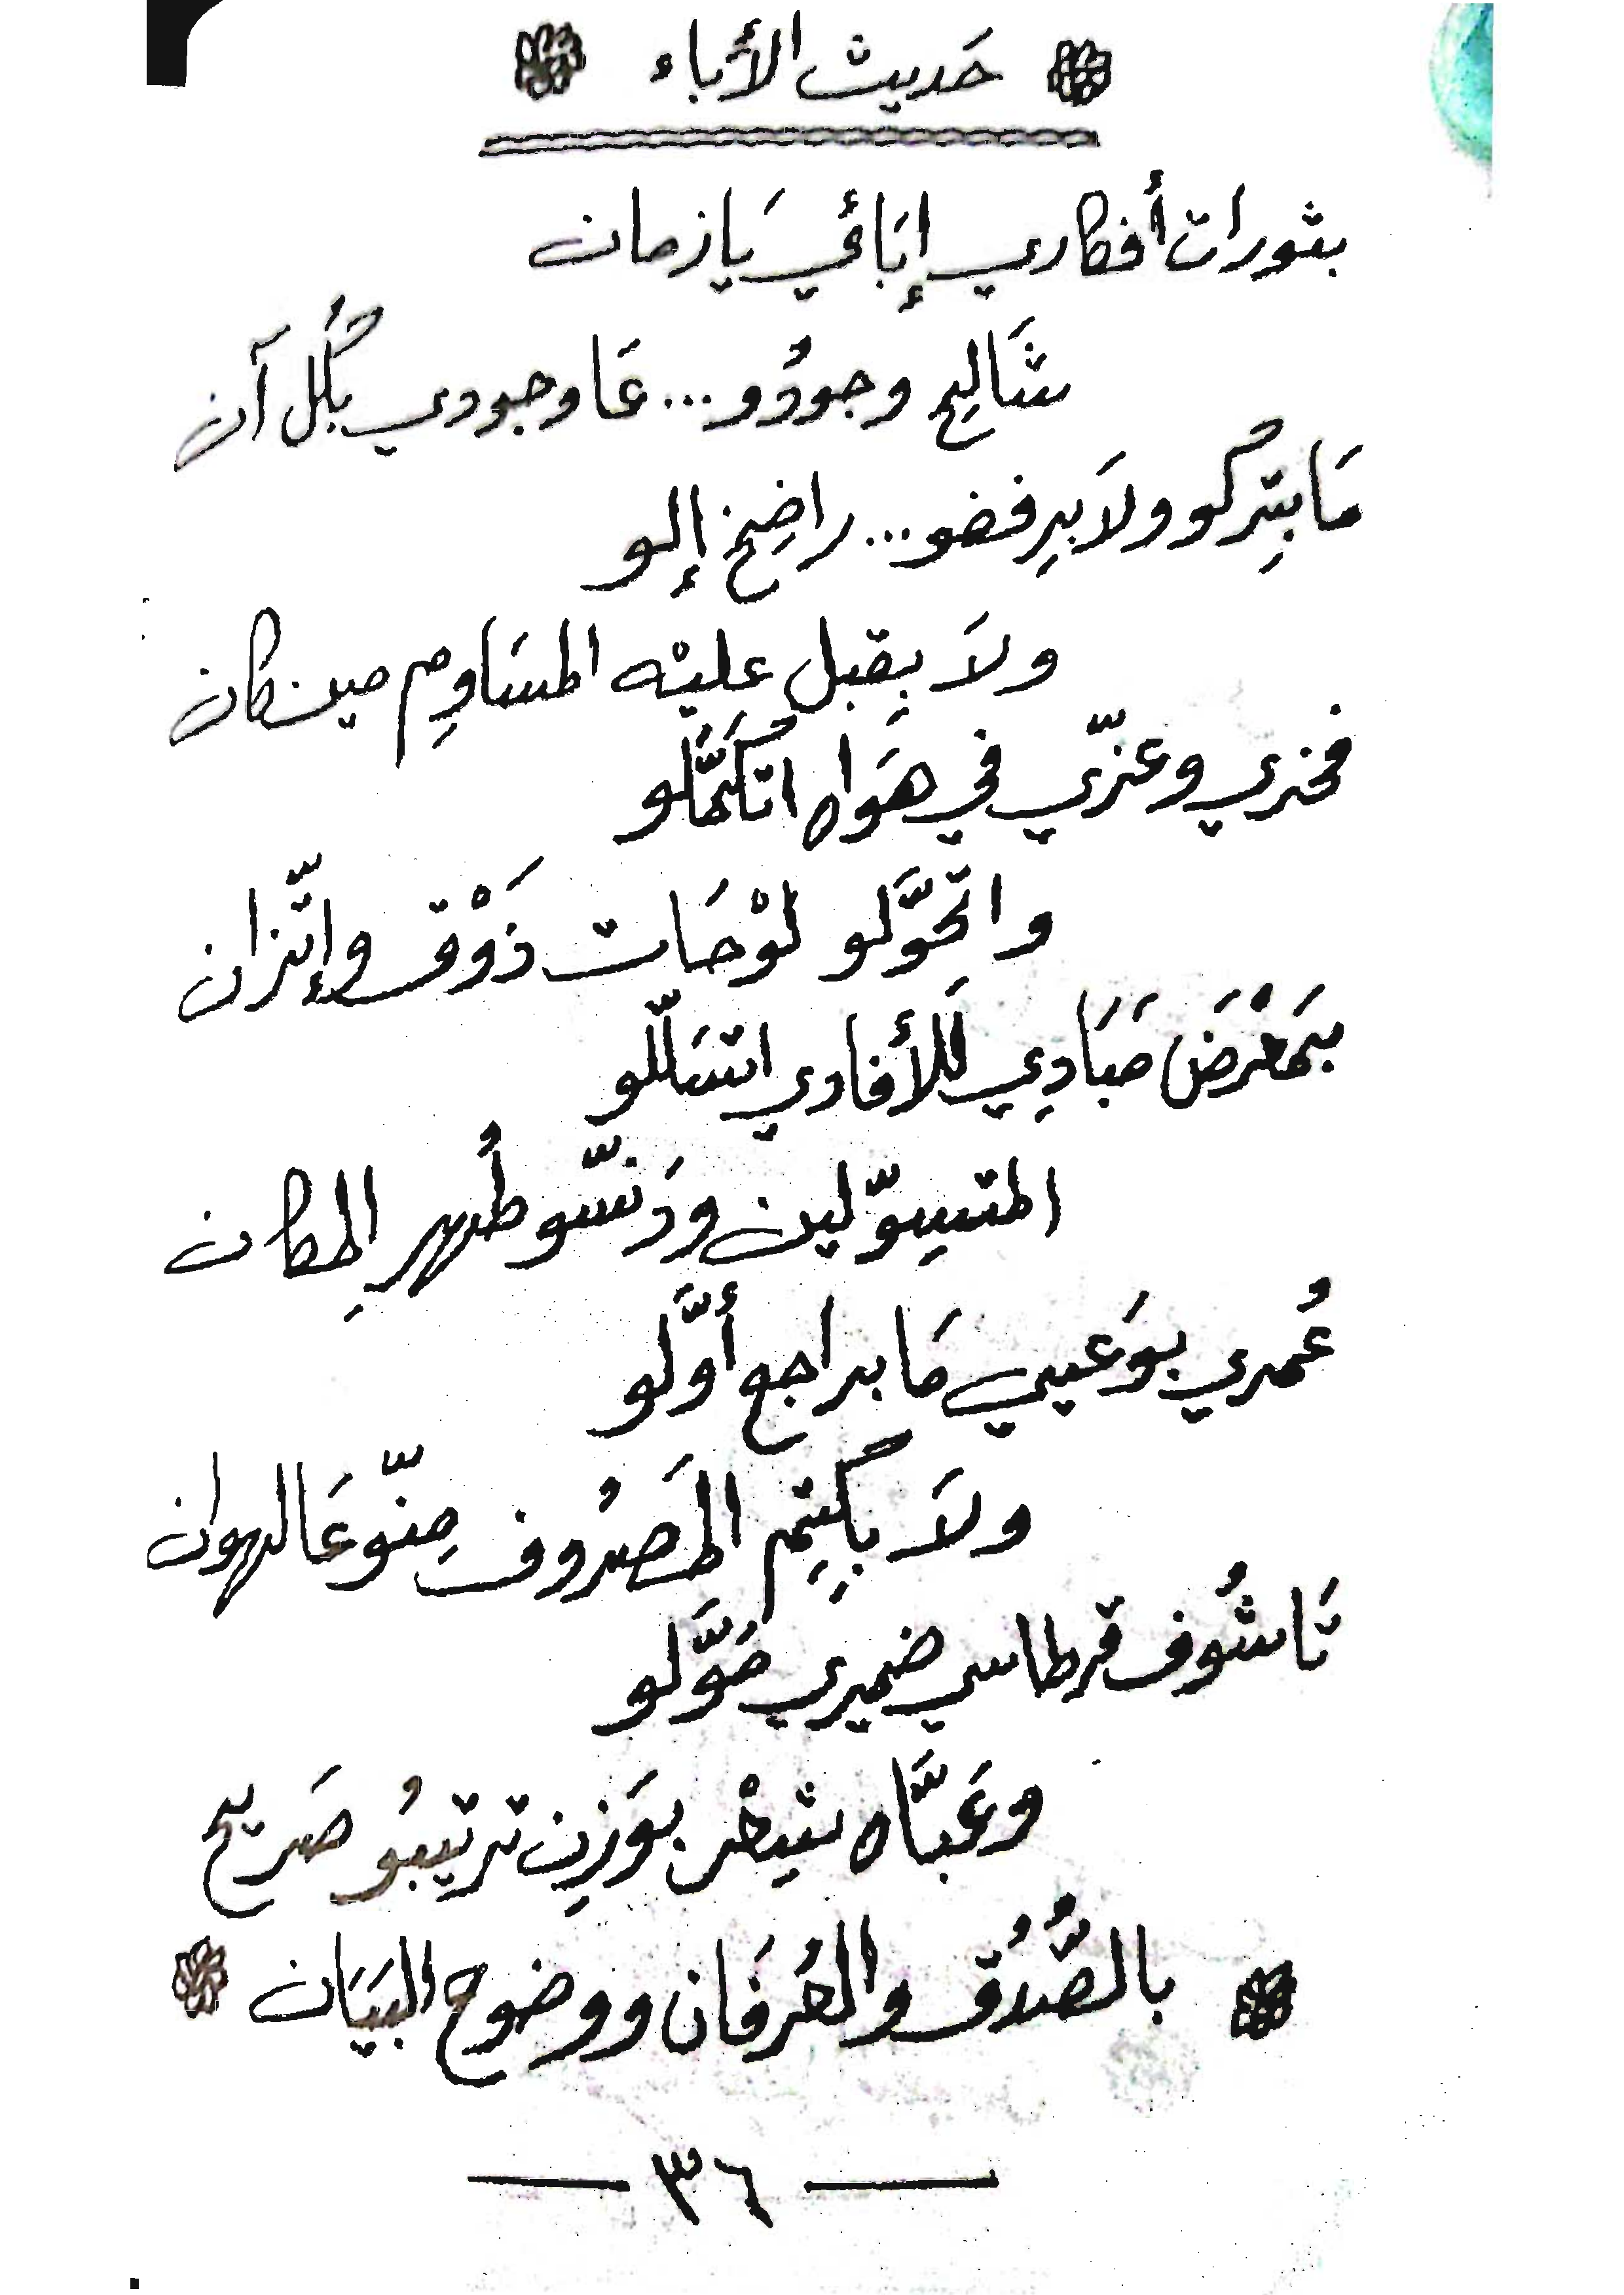 حَديث الأباء
بثورات أفكاري إبَائي يَا زمان
شَالِح وجودُو... عَا وجودي بكُل آن
مَا بتِركُو ولاَ بيرفضو... راضِخ إلو
ولاَ بِقبل عليْه المسَاوِم مين كان
فخري وعزّي في هوَاه اتكَمَّلو
واتحَوَّلو لوْحَات ذَوْق وإتّزان
بمَعْرَض مَبَادِي للأفادي اتسَلّلو
المتسوّلين ودَنّسو طُهر المِكان
عُمري بوَعيي مَا براجع أوَّلو
ولاَ بِكتِم المَصرُوف مِنّو عَا لهوان
تَا شُوف قرطاسي ضميري حَوَّلو
وعَبَّاه شِعْر بوَزِن ترتيبُو صَريح
بالصُدُق والعُرفَان ووضوح البيَان
— ٣٦ —